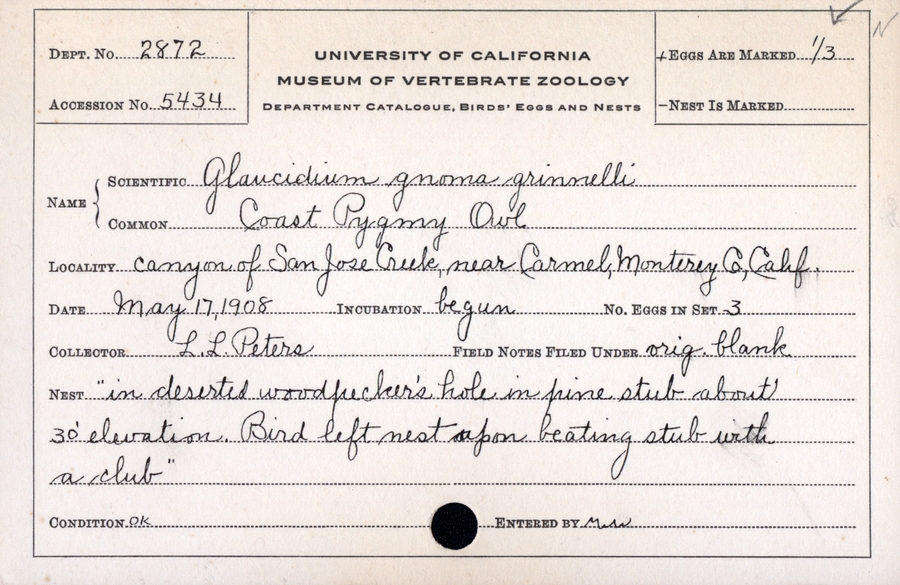 DEPT. No. 2872
ACCESSION No. 5434
UNIVERSITY OF CALIFORNIA
MUSEUM OF VERTEBRATE ZOOLOGY
DEPARTMENT CATALOGUE, BIRDS' EGGS AND NESTS
+EGGS ARE MARKED 1/3
N
-NEST IS MARKED
NAME
SCIENTIFIC Glaucidium gnoma grinnelli
COMMON Coast Pygmy Owl
LOCALITY canyon of San Jose Creek, near Carmel, Monterey Co, Calif.
DATE May 17, 1908 INCUBATION begun NO. EGGS IN SET 3
COLLECTOR L. L. Peters FIELD NOTES FILED UNDER orig. blank
NEST "in deserted woodpecker's hole in pine stub about
30' elevation. Bird left nest upon beating stub with
a club"
CONDITION OK ENTERED BY